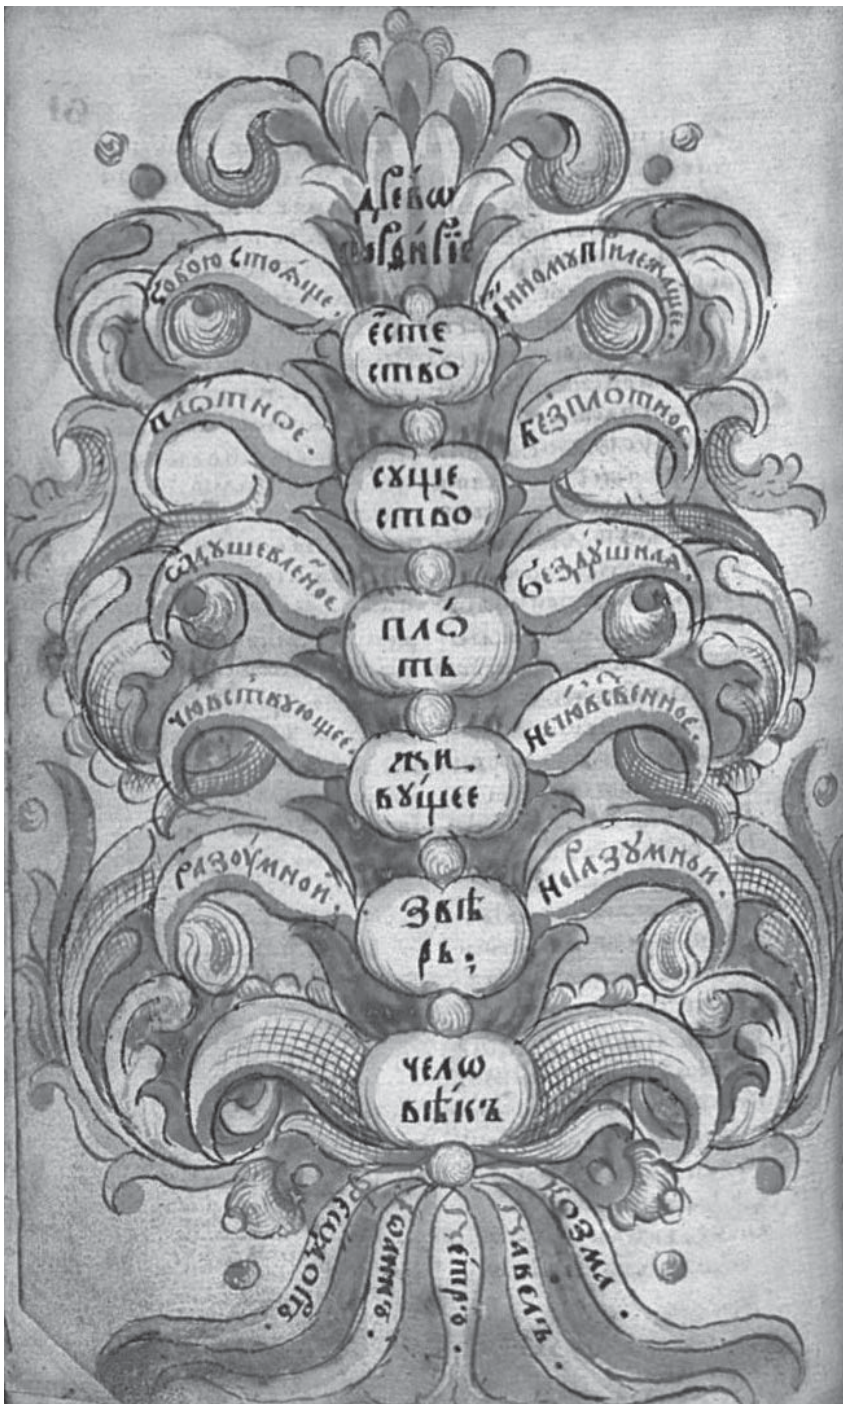 дре́вѡ
собою стоѧ́ще.
і́нному прїлежащее.
е́сте
ство̀
пло́тное.
безпло́тное.
суще
ство̀
ѡдушевле́ное
бездꙋ́шнаѧ.
пло́
ть
чювствующее.
нечю́вственное.
жи
вꙋ́щее
разоу́мной.
неразꙋ́мный.
звѣ́
рь;
челѡ
вѣ́къ
іѡаннъ.
пе́тръ.
павелъ.
козма.